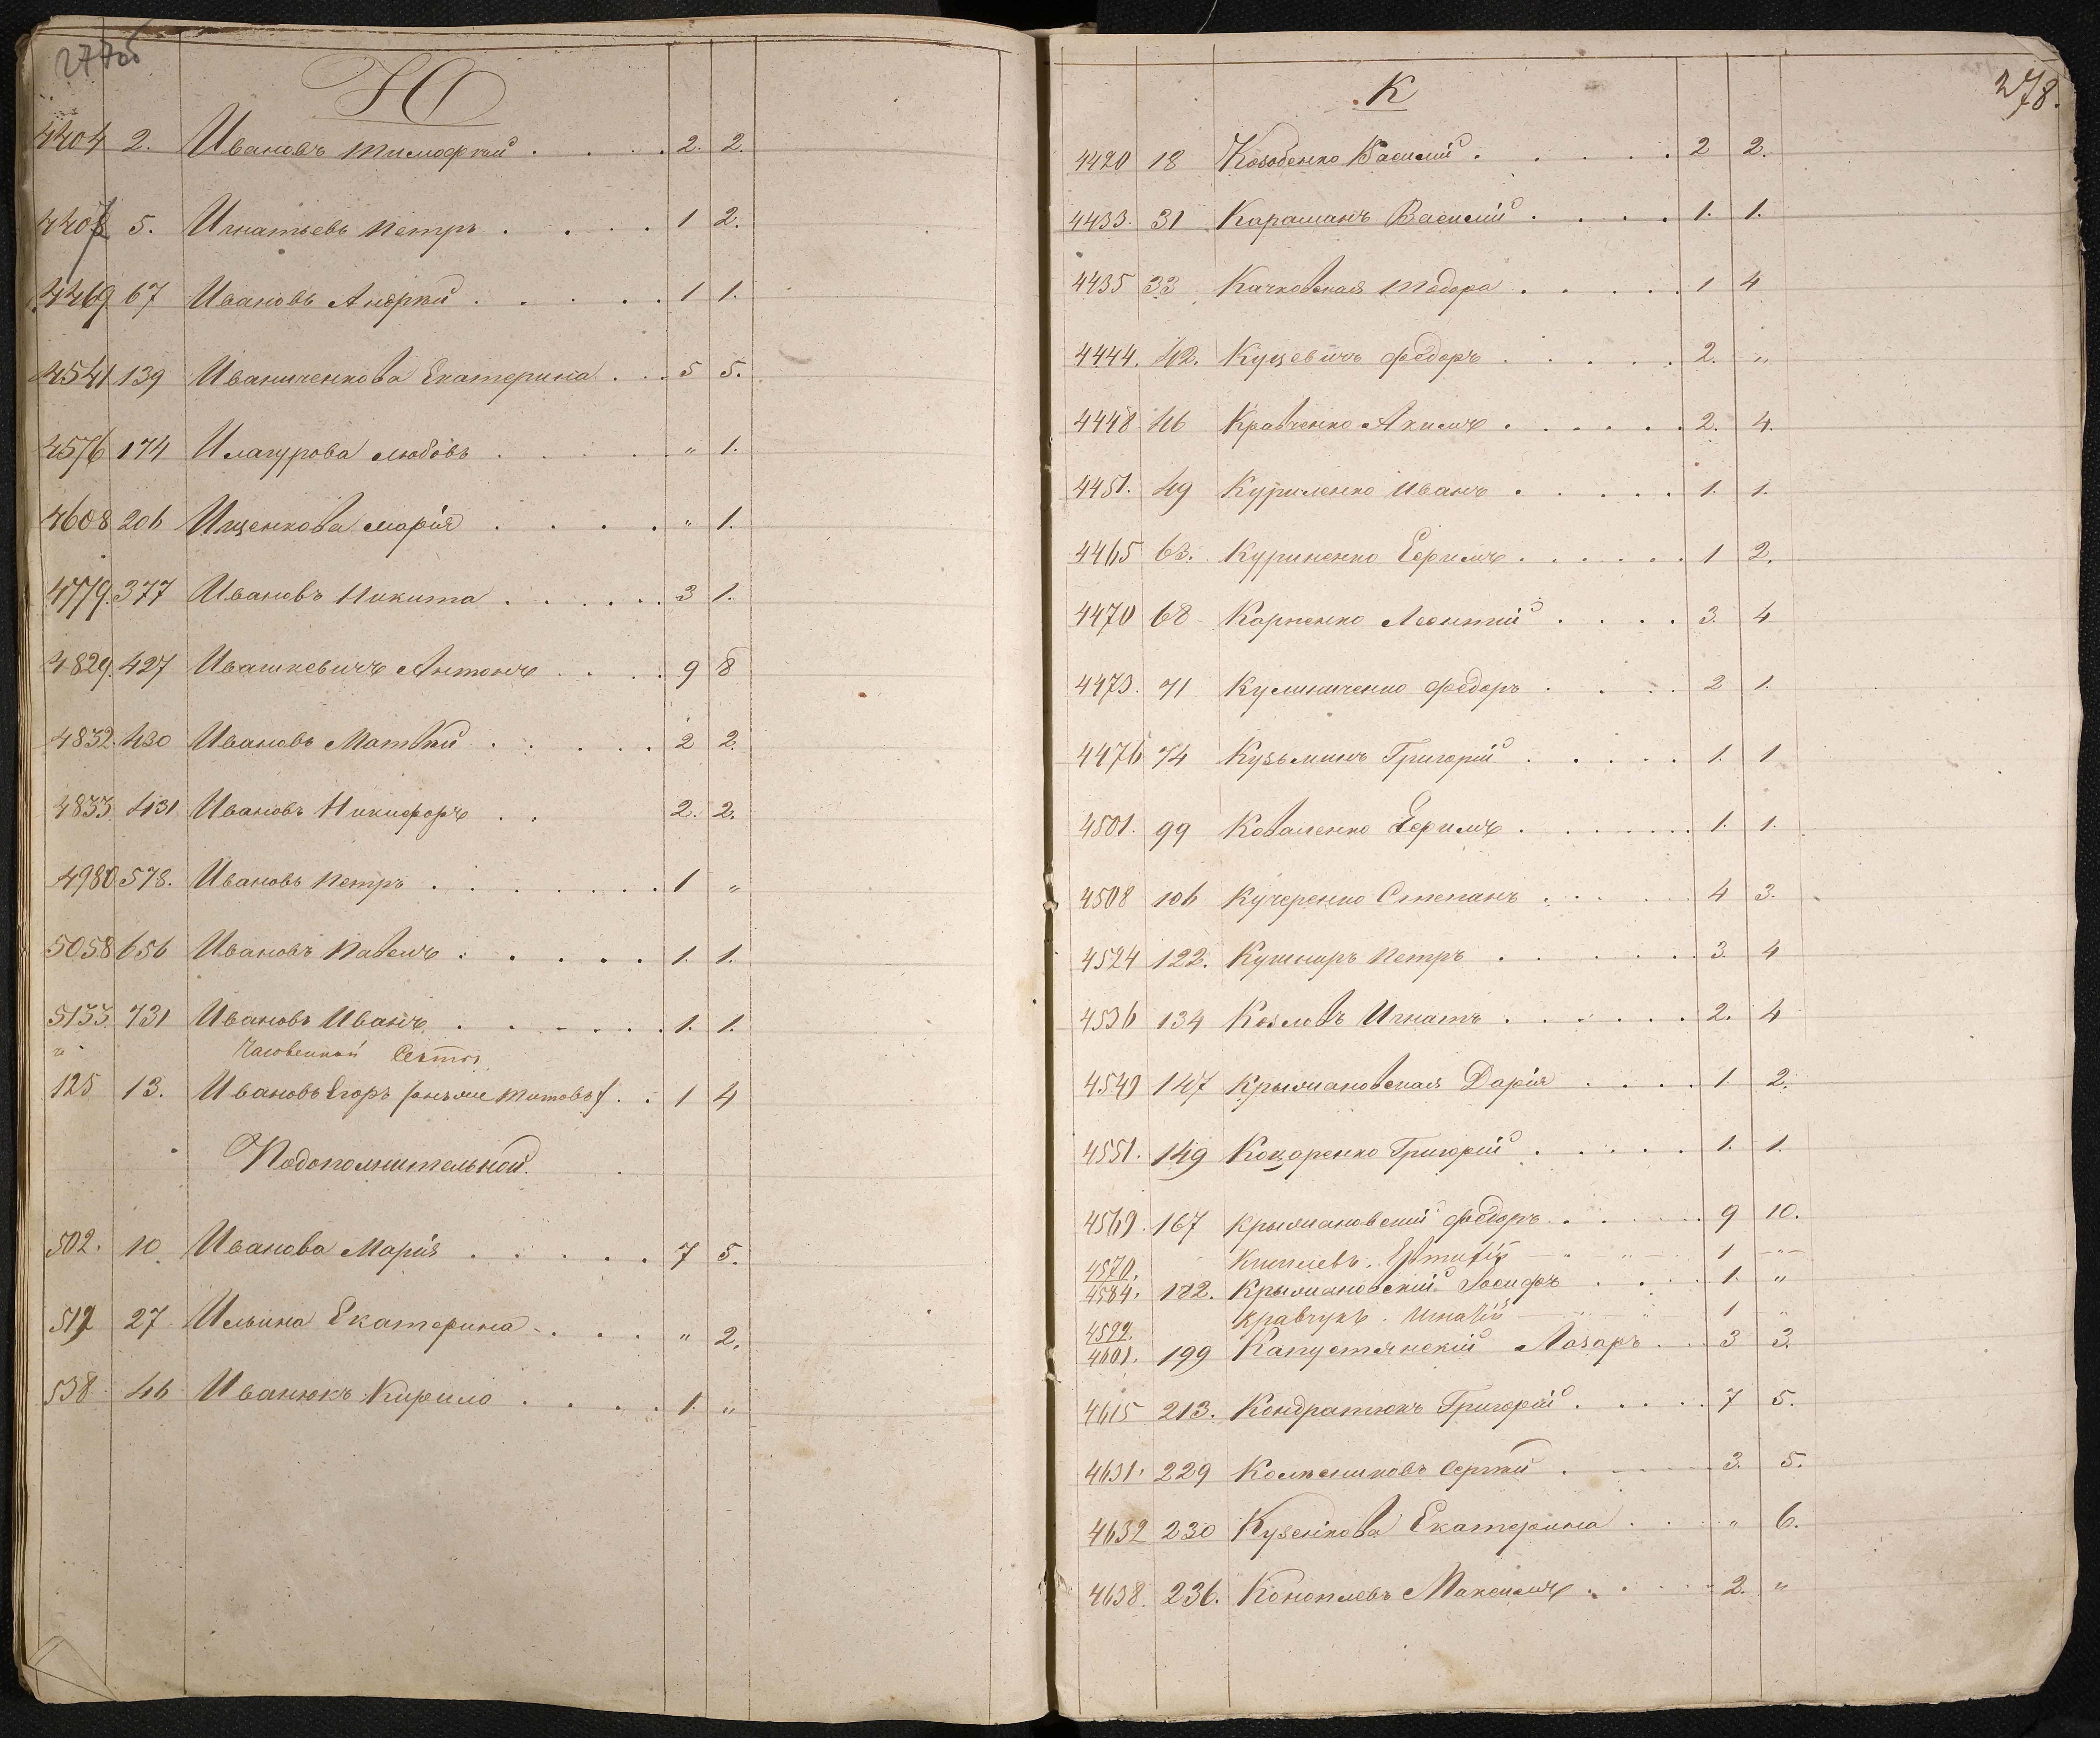 277об
И
4404 2. Ивановъ Тимофѣй . . . . 2. 2.
440 5. Игнатьевъ Петръ . . . . 1 2.
4469 67 Ивановъ Андрѣй . . . . . 1 1.
4541 139 Иваниченкова Екатерина . . 5 5.
4576 174 Илагурова Любовь . . . . . " 1.
4608 206 Ищенкова Марія . . . . " 1.
4779. 377 Ивановъ Никита . . . . . 3 1.
4829. 427 Ивашкевичъ Антонъ . . . . 9 8
4832. 430 Ивановъ Матвѣй . . . . . 2 2.
4833. 431 Ивановъ Никифоръ . . 2. 2.
4980 578. Ивановъ Петръ . . . . . . . 1 "
5058 656 Ивановъ Павелъ . . . . . 1. 1.
5133. 731 Ивановъ Иванъ . . . . . 1. 1.
Часовенной Секты
125 13. Ивановъ Егоръ (онъ же Титовъ) . . 1 4
Подополнительной.
502. 10 Иванова Марія . . . . . 7 5.
519 27 Ильина Екатерина . . . " 2.
538 46 Иванюкъ Кирило . . . . 1. "
278.
К
4420 18 Козобенко Василій . . . . . . 2 2.
4433. 31 Караманъ Василій . . . . 1. 1.
4435 33 Качковская Тодора . . . . . 1 4
4444. 42. Куцевичъ Федоръ . . . . . 2. "
4448 46 Кравченко Акимъ . . . . . . 2. 4.
4451. 49 Куриленко Иванъ . . . . . 1. 1.
4465 63. Куриненко Ефимъ . . . . . . 1 2.
4470 68 Карпенко Леонтій . . . . 3. 4
4473. 71 Кулиниченко Федоръ . . . . 2 1.
4476 74 Кузьминъ Григорій . . . . . 1. 1
4501. 99 Коваленко Ефимъ . . . . . . 1. 1.
4508 106 Кучеренко Степанъ . . . . . 4 3.
4524 122. Кушниръ Петръ . . . . . . 3. 4
4536 134 Козловъ Игнатъ . . . . . . 2. 4
4549 147 Крыжановская Дарія . . . . 1. 2.
4551. 149 Кокаренко Григорій . . . . . 1. 1.
4569. 167 Крыжановскій Федоръ . . . . . 9 10.
4570. 1 "
4584. 182. Крыжановскій Іосифъ . . . . 1. "
4599. Кравчукъ. Игнатій 1 "
4601. 199 Капустянскій Лазарь . . 3 3.
4615 213. Кондратюкъ Григорій . . . . . 7 5.
4631. 229 Колѣсниковъ Сергѣй . 3. 5.
4632 230 Кузенкова Екатерина . . . . " 6.
4638. 236. Коноплевъ Максимъ . . . . 2. "